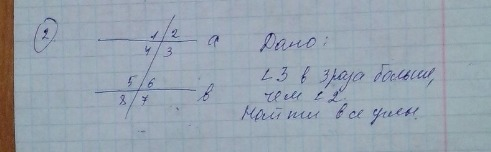 2
1 2 a
4 3
Дано:
∠3 в 3 раза больше,
чем ∠2.
Найти все углы.
5 6
8 7 в